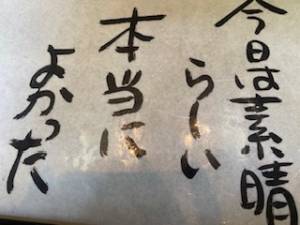 今日は素晴
らしい
本当に
よかった